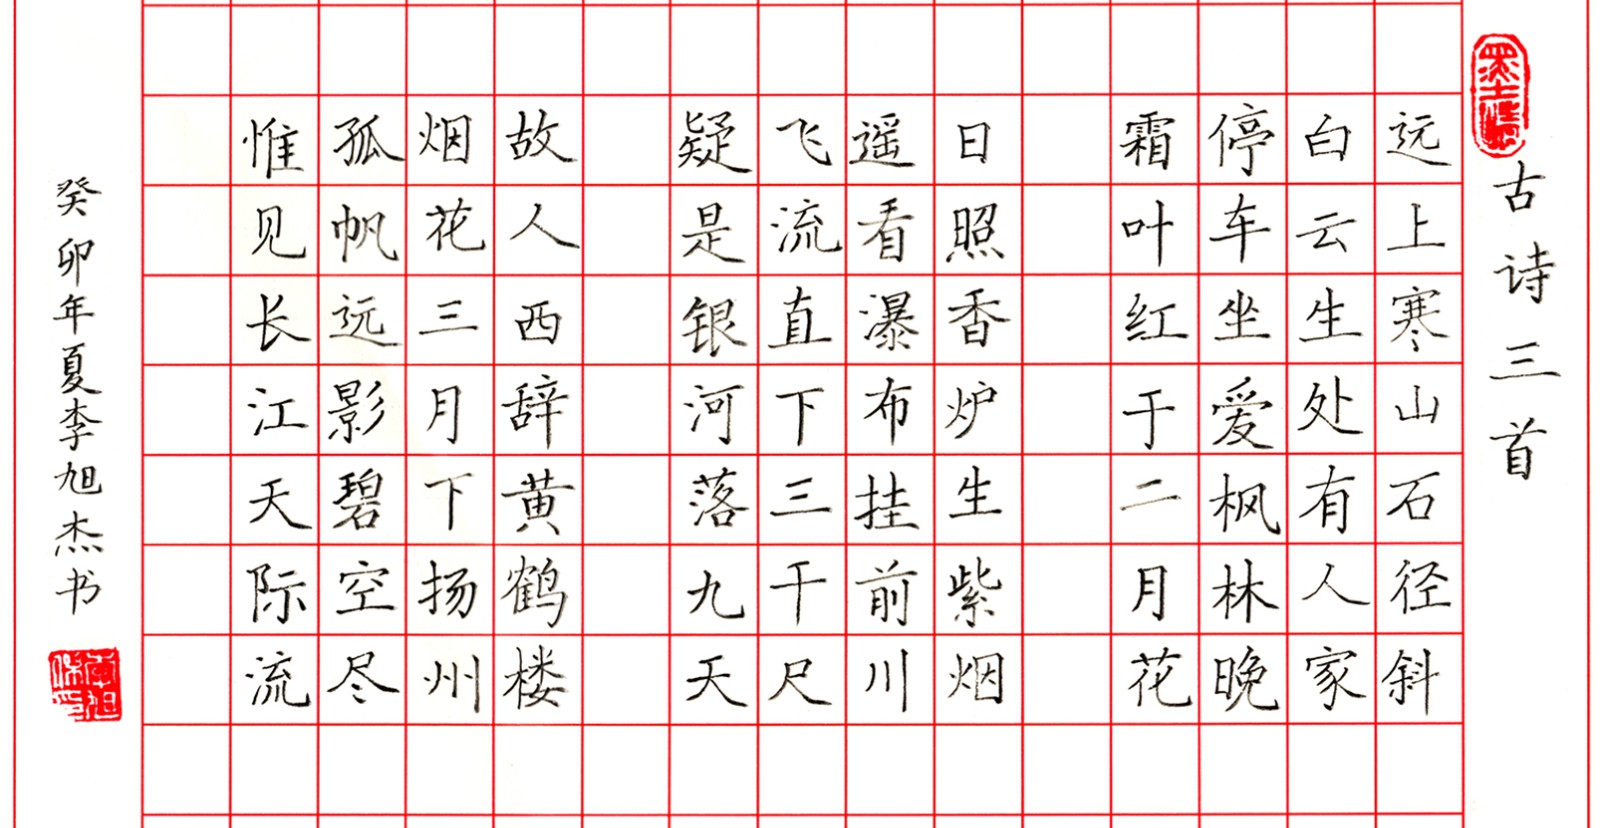 古诗三首
远上寒山石径斜
白云生处有人家
停车坐爱枫林晚
霜叶红于二月花
日照香炉生紫烟
遥看瀑布挂前川
飞流直下三千尺
疑是银河落九天
故人西辞黄鹤楼
烟花三月下扬州
孤帆远影碧空尽
惟见长江天际流
癸卯年夏李旭杰书